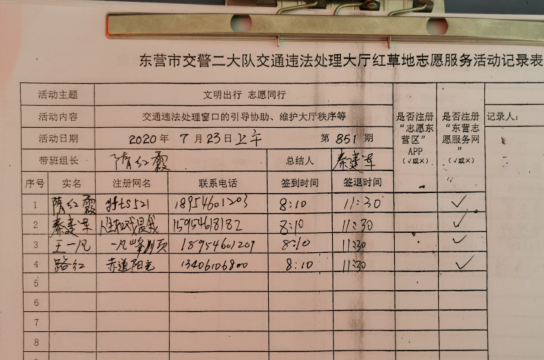 东营市交警二大队交通违法处理大厅红草地志愿服务活动记录表
活动主题 文明出行 志愿同行
活动内容 交通违法处理窗口的引导协助、维护大厅秩序等
活动日期 2020年7月23日上午 第851期
是否注册“志愿东营区”APP（√或×）
是否注册“东营志愿服务网”（√或×）
记录人：
带班组长 隋红霞 总结人 秦建军
序号 实名 注册网名 联系电话 签到时间 签退时间
1 隋红霞 18954601203 8:10 11:30 ✓
2 秦建军 15954618182 8:10 11:30 ✓
3 王一凡 18954601207 8:10 11:30 ✓
4 路红 赤道阳光 13406106800 8:10 11:30 ✓
5
6
7
8